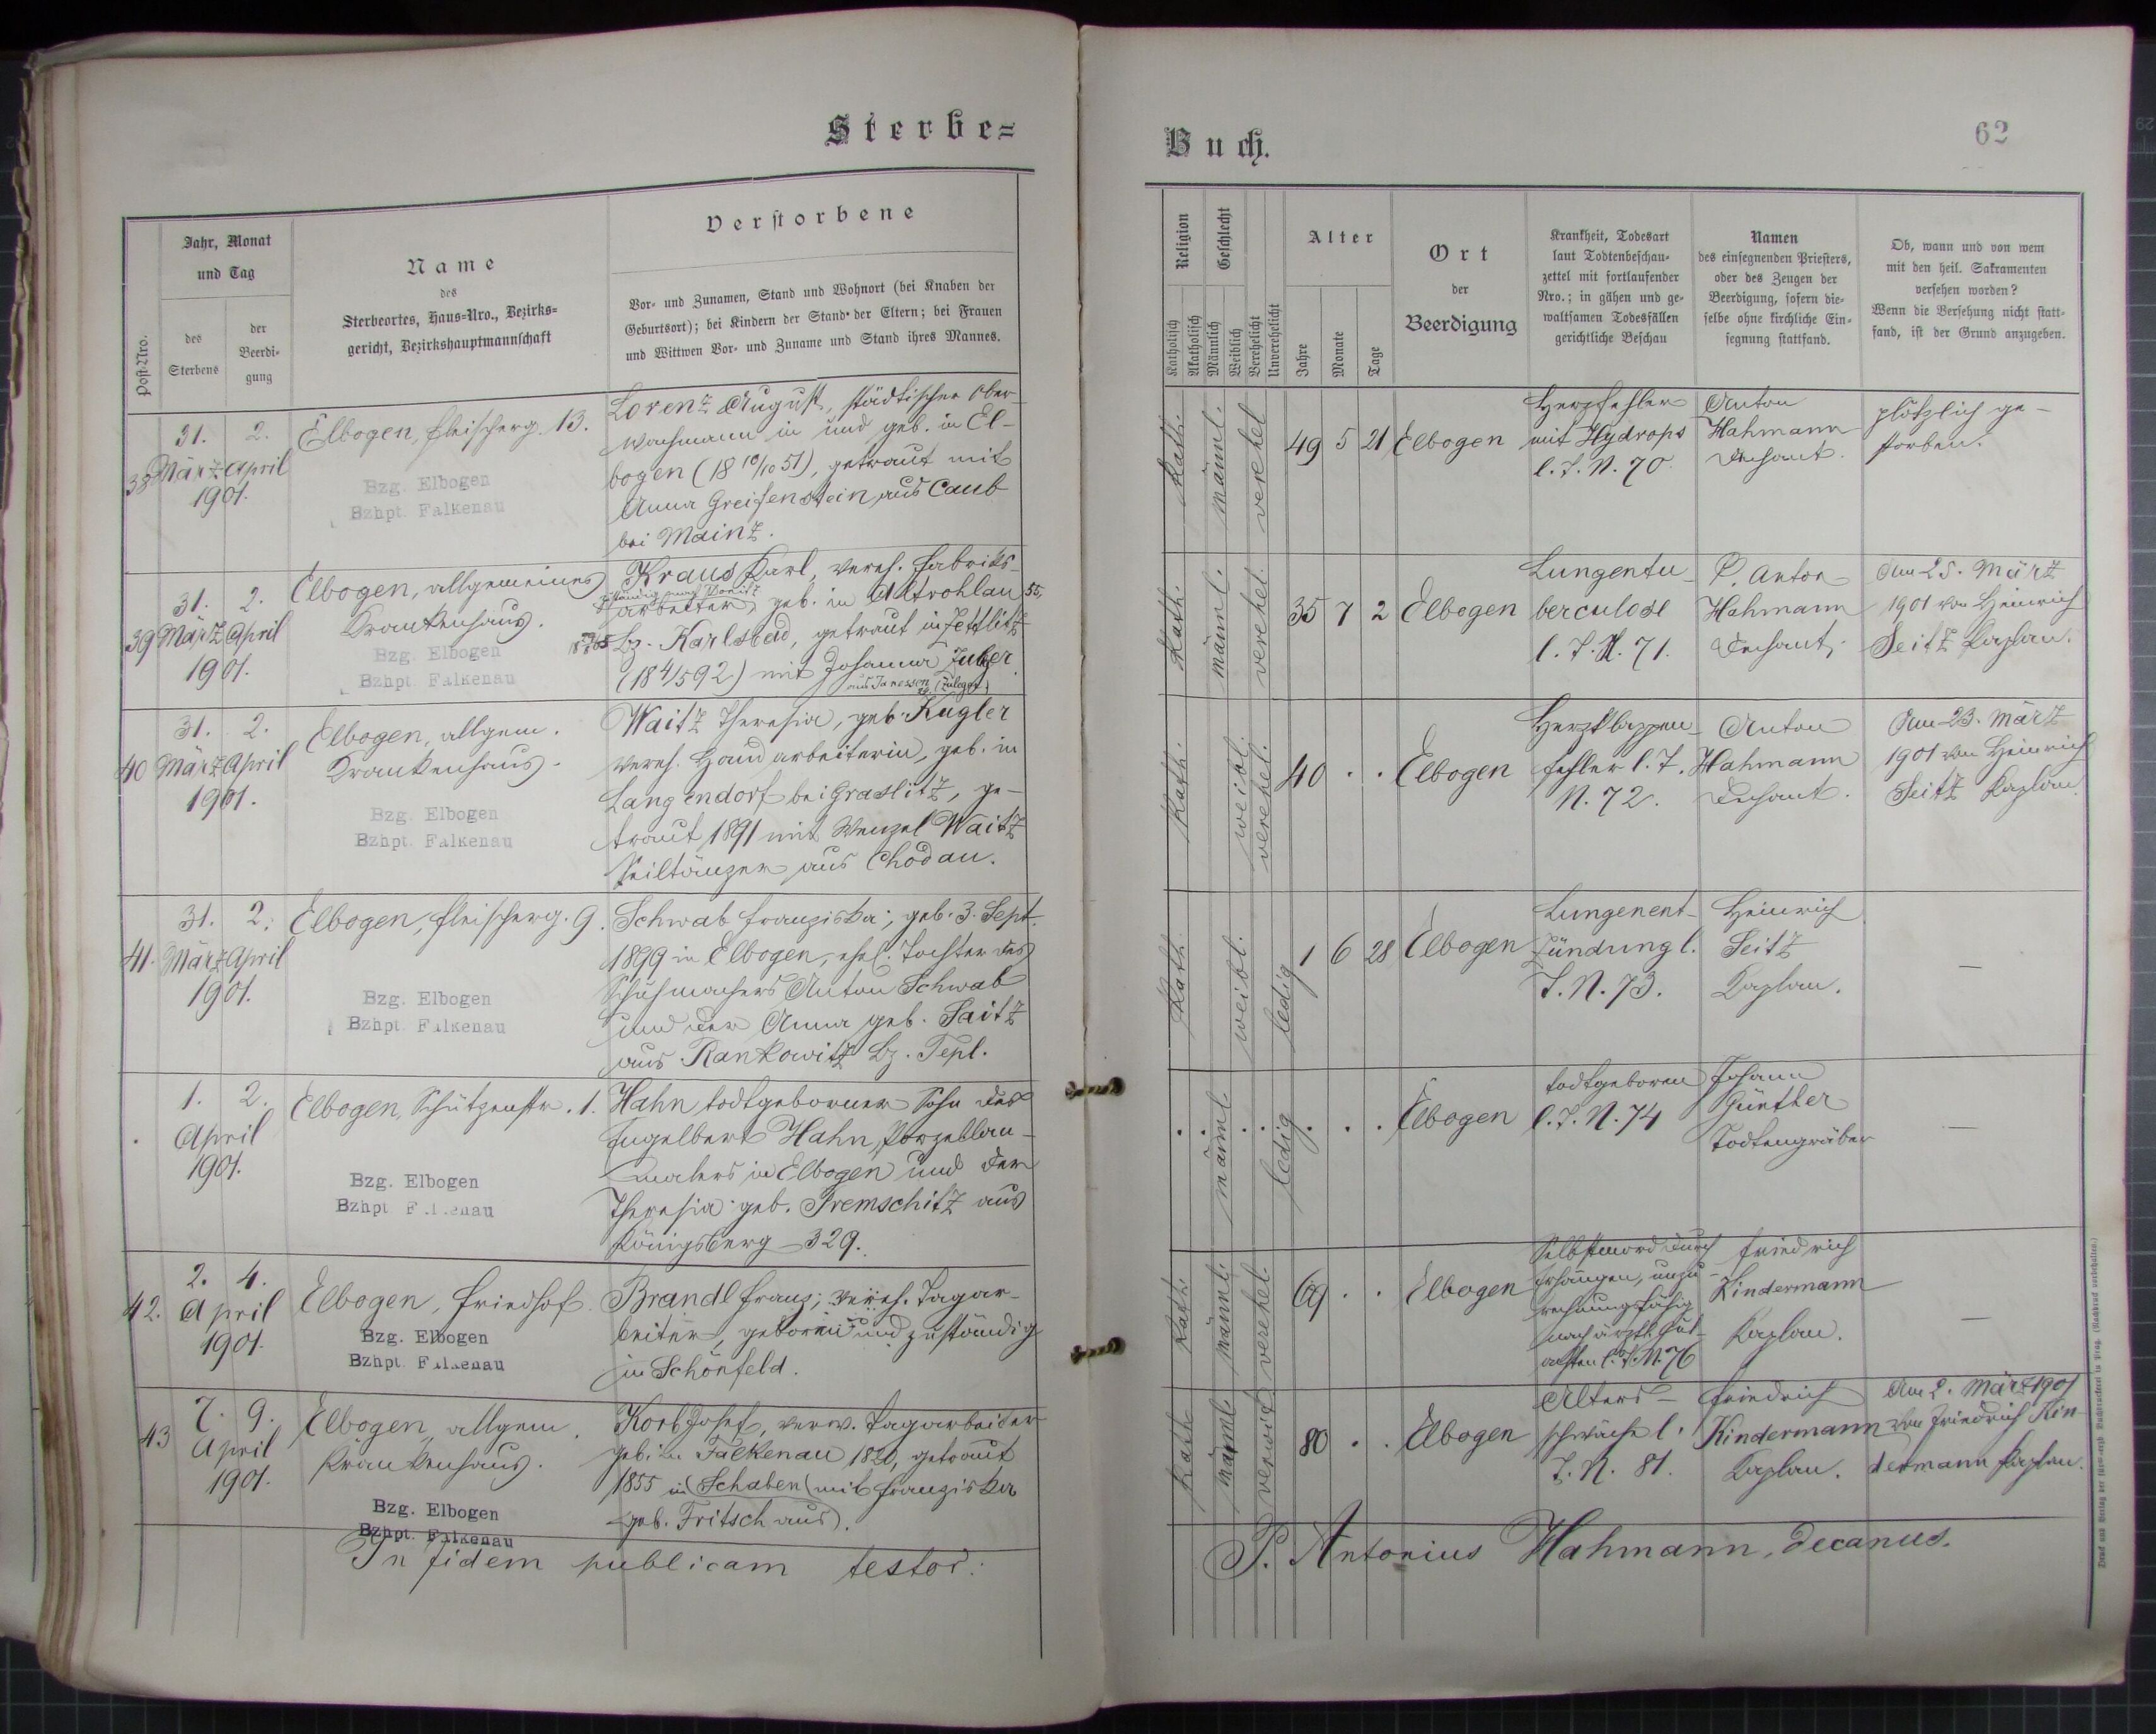 Sterbe=
Jahr, Monat
und Tag
Post-Nro.
des
Sterbens
der
Beerdi-
gung
Name
des
Sterbeortes, Haus-Nro., Bezirks-
gericht, Bezirkshauptmannschaft
Verstorbene
Vor- und Zunamen, Stand und Wohnort (bei Knaben der
Geburtsort); bei Kindern der Stand der Eltern; bei Frauen
und Wittwen Vor- und Zuname und Stand ihres Mannes.
38
31. März 1901.
2. April
Elbogen, Fleischerg. 13.
Bzg. Elbogen
Bzhpt. Falkenau
Lorenz August, städtischer Ober-
wachmann in und geb. in El-
bogen (18 10/10 51), getraut mit
Anna Greifenstein aus Caub
bei Mainz.
39
31. März 1901.
2. April
Elbogen, allgemeines
Krankenhaus.
Bzg. Elbogen
Bzhpt. Falkenau
Kraus Karl, vereh. Fabriks-
arbeiter, geb. in Altrohlau 55,
Bz. Karlsbad, getraut in Zettlitz
(18 4/5 92) mit Johanna
aus Janessen
40
31. März 1901.
2. April
Elbogen, allgem.
Krankenhaus.
Bzg. Elbogen
Bzhpt. Falkenau
Waitz Theresia, geb. Kugler
vereh. Handarbeiterin, geb. in
Langendorf bei Graslitz, ge-
traut 1891 mit Wenzel Waitz
Seiltänzer aus Chodau.
41.
31. März 1901.
2. April
Elbogen, Fleischerg. 9.
Bzg. Elbogen
Bzhpt. Falkenau
Schwab Franziska, geb. 3. Sept.
1899 in Elbogen, ehel. Tochter des
Schuhmachers Anton Schwab
und der Anna geb. Saitz
aus Rankowitz Bz. Tepl.
1. April 1901.
2.
Elbogen, Schützenstr. 1.
Bzg. Elbogen
Bzhpt. Falkenau
Hahn todtgeborener Sohn des
Engelbert Hahn, Porzellan-
malers in Elbogen und der
Theresia geb. Premschitz aus
Königsberg 329.
42.
2. April 1901.
4.
Elbogen, Friedhof.
Bzg. Elbogen
Bzhpt. Falkenau
Brandl Franz, vereh. Tagar-
beiter, geboren und zuständig
in Schönfeld.
43
7. April 1901.
9.
Elbogen, allgem.
Krankenhaus.
Bzg. Elbogen
Bzhpt. Falkenau
Korb Josef, verw. Tagarbeiter
geb. in Falkenau 1820, getraut
1855 in Schaben (mit Franziska
geb. Fritsch aus).
In fidem publicam testor:
Buch.
62
Religion
Katholisch
Akatholisch
Geschlecht
Männlich
Weiblich
Verehelicht
Unverehelicht
Alter
Jahre
Monate
Tage
Ort
der
Beerdigung
Krankheit, Todesart
laut Todtenbeschau-
zettel mit fortlaufender
Nro.; in gähen und ge-
waltsamen Todesfällen
gerichtliche Beschau
Namen
des einsegnenden Priesters,
oder des Zeugen der
Beerdigung, sofern die-
selbe ohne kirchliche Ein-
segnung stattfand.
Ob, wann und von wem
mit den heil. Sakramenten
versehen worden?
Wenn die Versehung nicht statt-
fand, ist der Grund anzugeben.
Kath. männl. verehel
49 5 21 Elbogen
Herzfehler
mit Hydrops
l. T. N. 70
Anton
Hahmann
Dechant.
plötzlich ge-
storben.
Kath. männl. verehel.
35 7 2 Elbogen
Lungentu-
berculose
l. T. N. 71.
P. Anton
Hahmann
Dechant.
Am 25. März
1901 von Heinrich
Seitz Kaplan.
Kath. weibl. verehel.
40 . . Elbogen
Herzklappen-
fehler l. T.
N. 72.
Anton
Hahmann
Dechant.
Am 23. März
1901 von Heinrich
Seitz Kaplan.
Kath. weibl. ledig
1 6 28 Elbogen
Lungenent-
zündung l.
T. N. 73.
Heinrich
Seitz
Kaplan.
—
männl. ledig
. . . Elbogen
todtgeboren
l. T. N. 74
Johann
Günther
Todtengräber
—
Kath. männl. verehel.
69 . . Elbogen
Selbstmord durch
Erhängen, unzu-
rechnungsfähig
nach ärztl. Gut-
achten l. T. N. 76
Friedrich
Kindermann
Kaplan.
—
Kath. männl. verwit
80 . . Elbogen
Alters-
schwäche l.
T. N. 81.
Friedrich
Kindermann
Kaplan.
Am 2. März 1901
von Friedrich Kin-
dermann Kaplan.
P. Antonius Hahmann, Decanus.